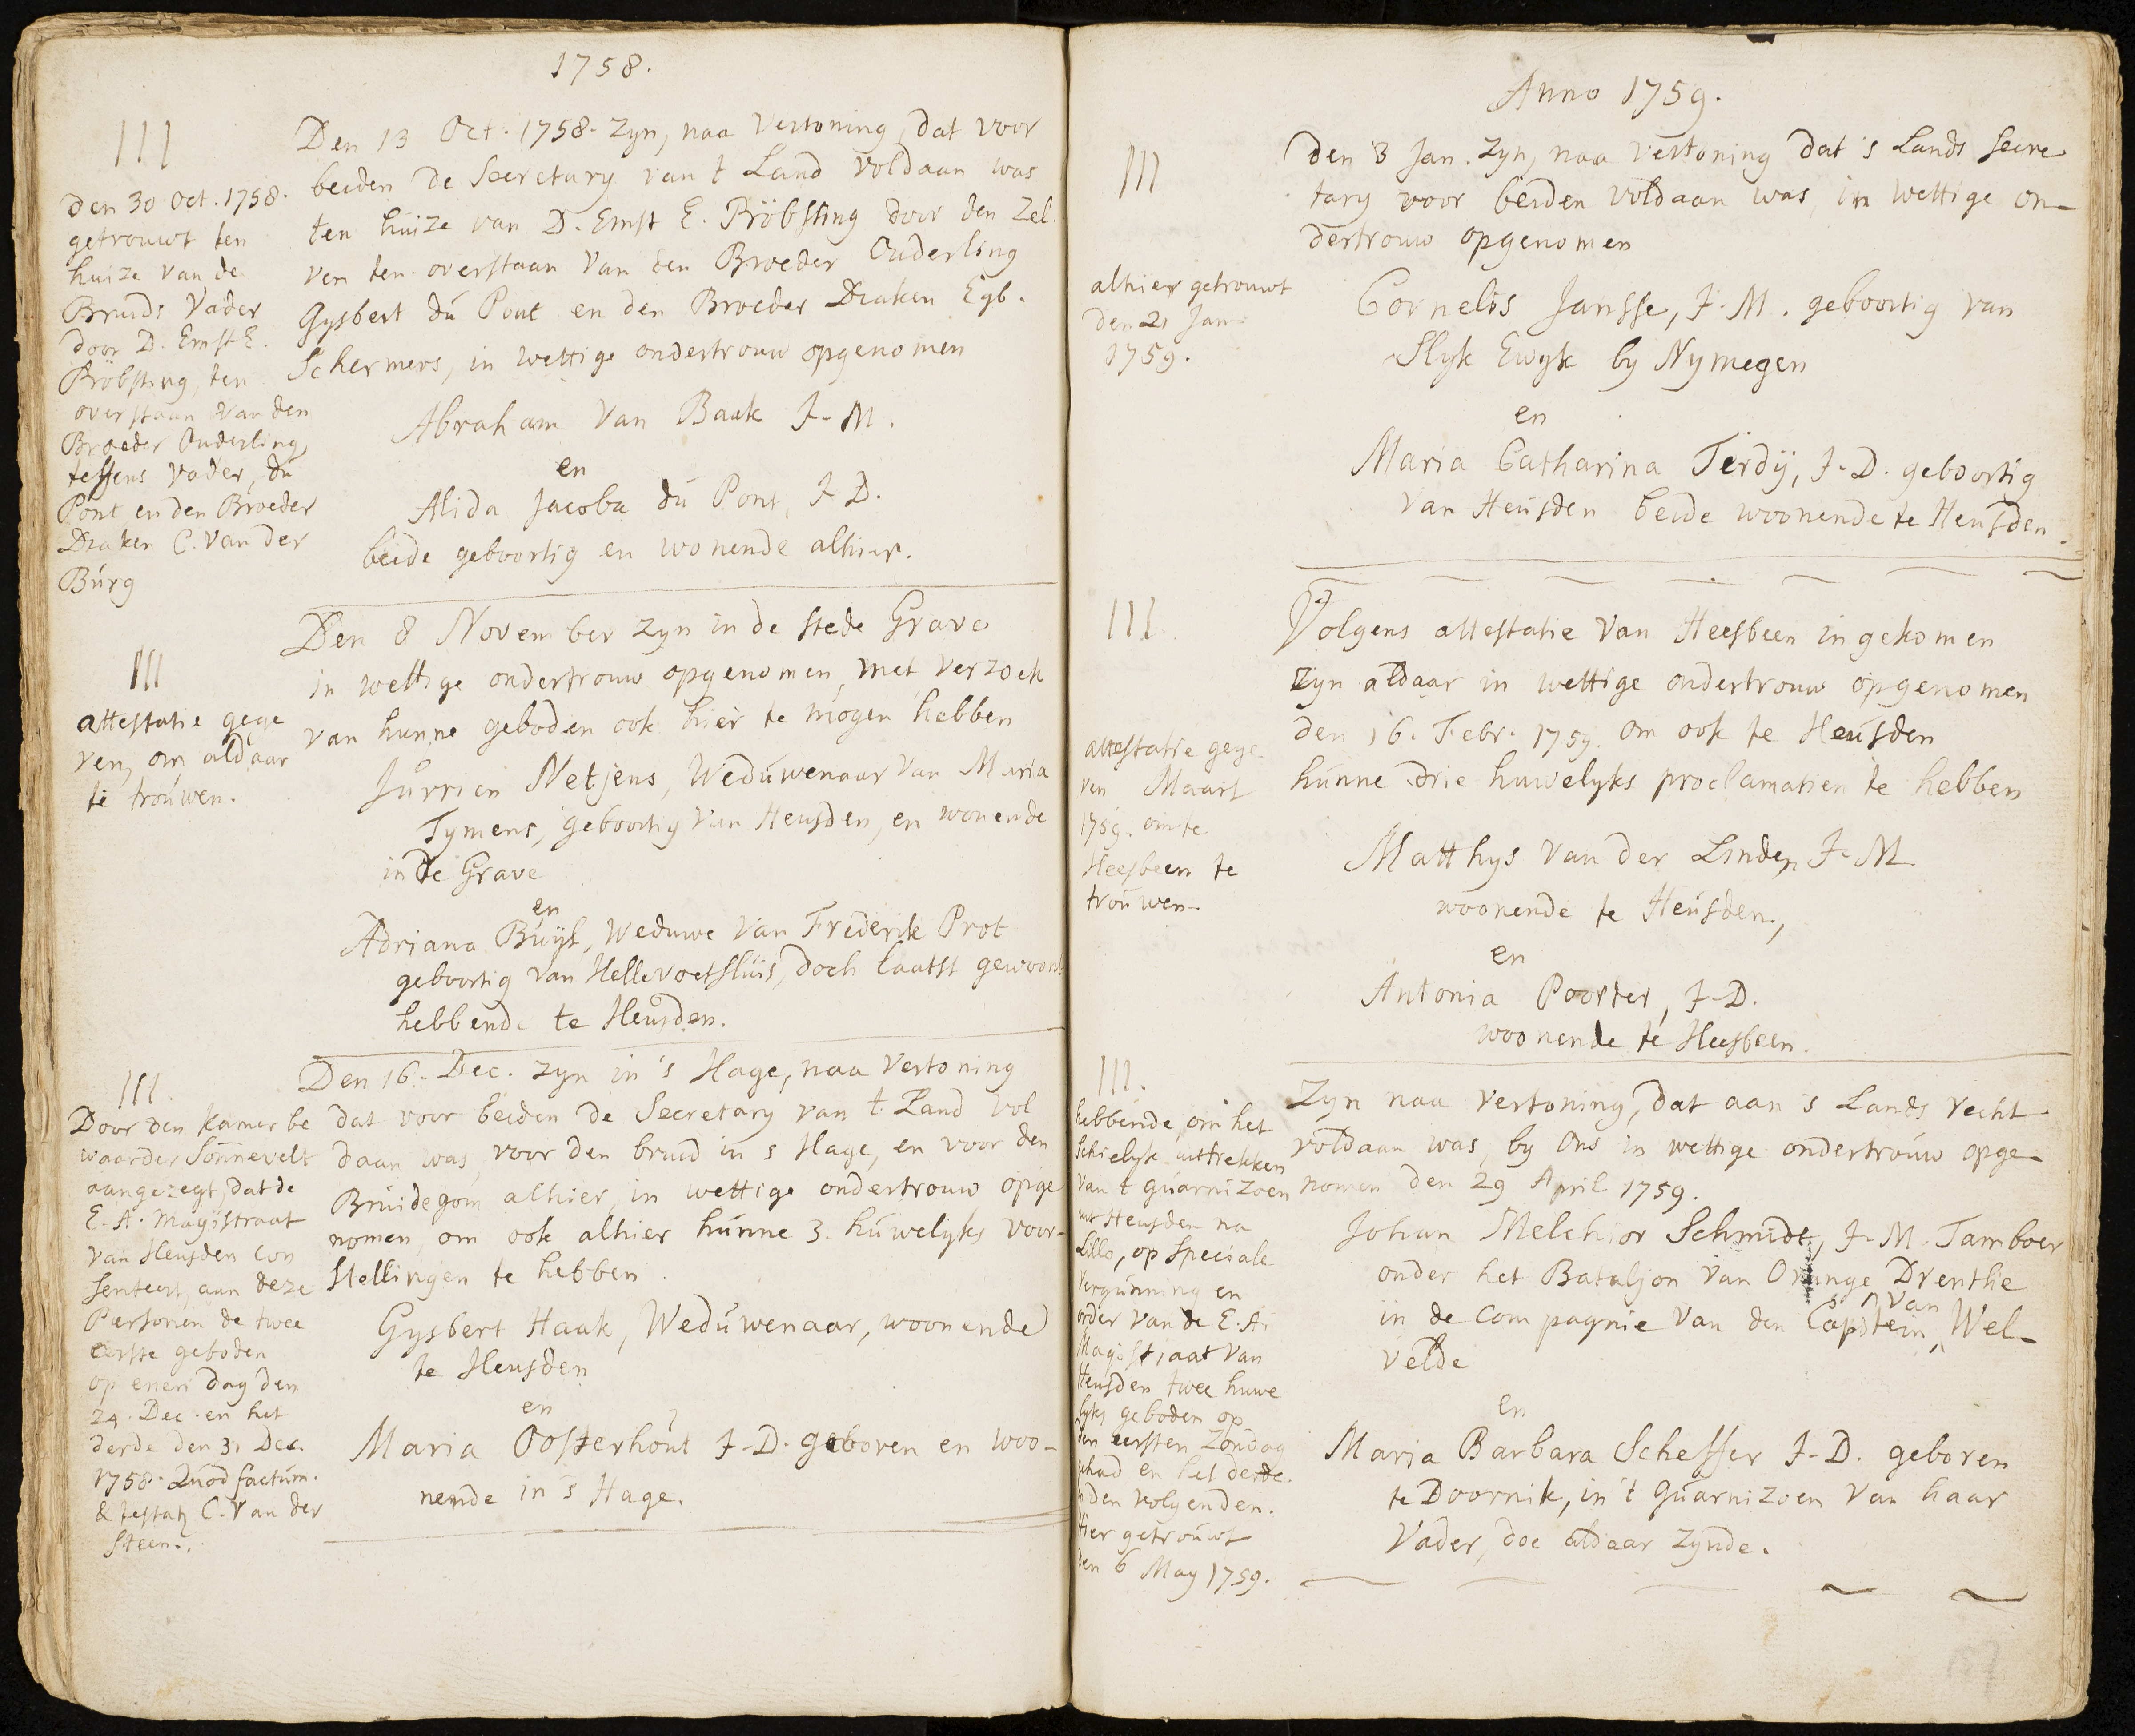 1758.
III
Den 13 Oct. 1758. zyn, naa vertoning, dat voor
beiden de Secretary van t Land voldaan was
ten huize van D. Ernst E. Pröbsting door den zel
ven ten overstaan van den Broeder Ouderling
Gysbert du Pont en den Broeder Diaken Egb.
Schermers, in wettige ondertrouw opgenomen
Abraham van Baak J-M.
en
Alida Jacoba du Pont, J-D.
beide geboortig en wonende alhier.
den 30 Oct. 1758.
getrouwt ten
huize van de
Bruids vader
door D. Ernst E.
Pröbsting, ten
overstaan van den
Broeder Ouderling,
teffens vader, du
Pont en den Broeder
Diaken C. van der
Burg
Den 8 November zyn in de stede Grave
in wettige ondertrouw opgenomen, met verzoek
van hunne geboden ook hier te mogen hebben
Jurrien Netjens, Weduwenaar van Maria
Tymens, geboortig van Heusden, en wonende
in de Grave
en
Adriana Buys, Weduwe van Frederik Prot
geboortig van Hellevoetsluis, doch laatst gewoont
hebbende te Heusden.
III
attestatie gege
ven, om aldaar
te trouwen.
Den 16. Dec. zyn in 's Hage, naa vertoning
dat voor beiden de Secretary van t Land vol
daan was, voor den bruid in s Hage, en voor den
Bruidegom alhier, in wettige ondertrouw opge
nomen, om ook alhier hunne 3. huwelyks voor-
stellingen te hebben
Gysbert Haak, Weduwenaar, woonende
te Heusden
en
Maria Oosterhout J-D. geboren en woo-
nende in 's Hage.
III.
Door den Kamerbe
waarder Sonnevelt
aangezegt, dat de
E. A. Magistraat
van Heusden con
senteert, aan deze
Personen de twee
eerste geboden
op enen dag den
24. Dec. en het
derde den 31 Dec.
1758. Quod factum.
& testatr C. van der
Steen.
Anno 1759.
III
Den 3 Jan. zyn, naa vertoning dat 's Lands Secre
tary voor beiden voldaan was, in wettige on-
dertrouw opgenomen
Cornelis Jansse, J-M. geboortig van
Slyk Ewyk by Nymegen
en
Maria Catharina Terdÿ, J-D. geboortig
van Heusden beide woonende te Heusden.
alhier getrouwt
den 21 Jan
1759.
III.
Volgens attestatie van Heesbeen ingekomen
zyn aldaar in wettige ondertrouw opgenomen
den 16. Febr. 1759. om ook te Heusden
hunne drie huwelyks proclamatien te hebben
Matthys van der Linden J-M
woonende te Heusden,
en
Antonia Poorter, J-D.
woonende te Heesbeen.
attestatie gege
ven Maart
1759. om te
Heesbeen te
trouwen.
III.
Zyn naa vertoning, dat aan 's Lands recht
voldaan was, by Ons in wettige ondertrouw opge-
nomen den 29 April 1759.
Johan Melchior Schmidt, J-M. Tamboer
onder het Bataljon van Orange Drenthe
in de Compagnie van den Capitein van Wel-
velde
en
Maria Barbara Scheffer J-D. geboren
te Doornik, in 't guarnizoen van haar
Vader, doe aldaar zynde.
hebbende, om het
schielyk uittrekken
van t guarnizoen
uit Heusden na
Lillo, op speciale
vergunning en
order van de E. A.
Magistraat van
Heusden twee huwe
lyks geboden op
den eersten Zondag
gehad en het derde
op den volgenden.
Hier getrouwt
den 6 May 1759.